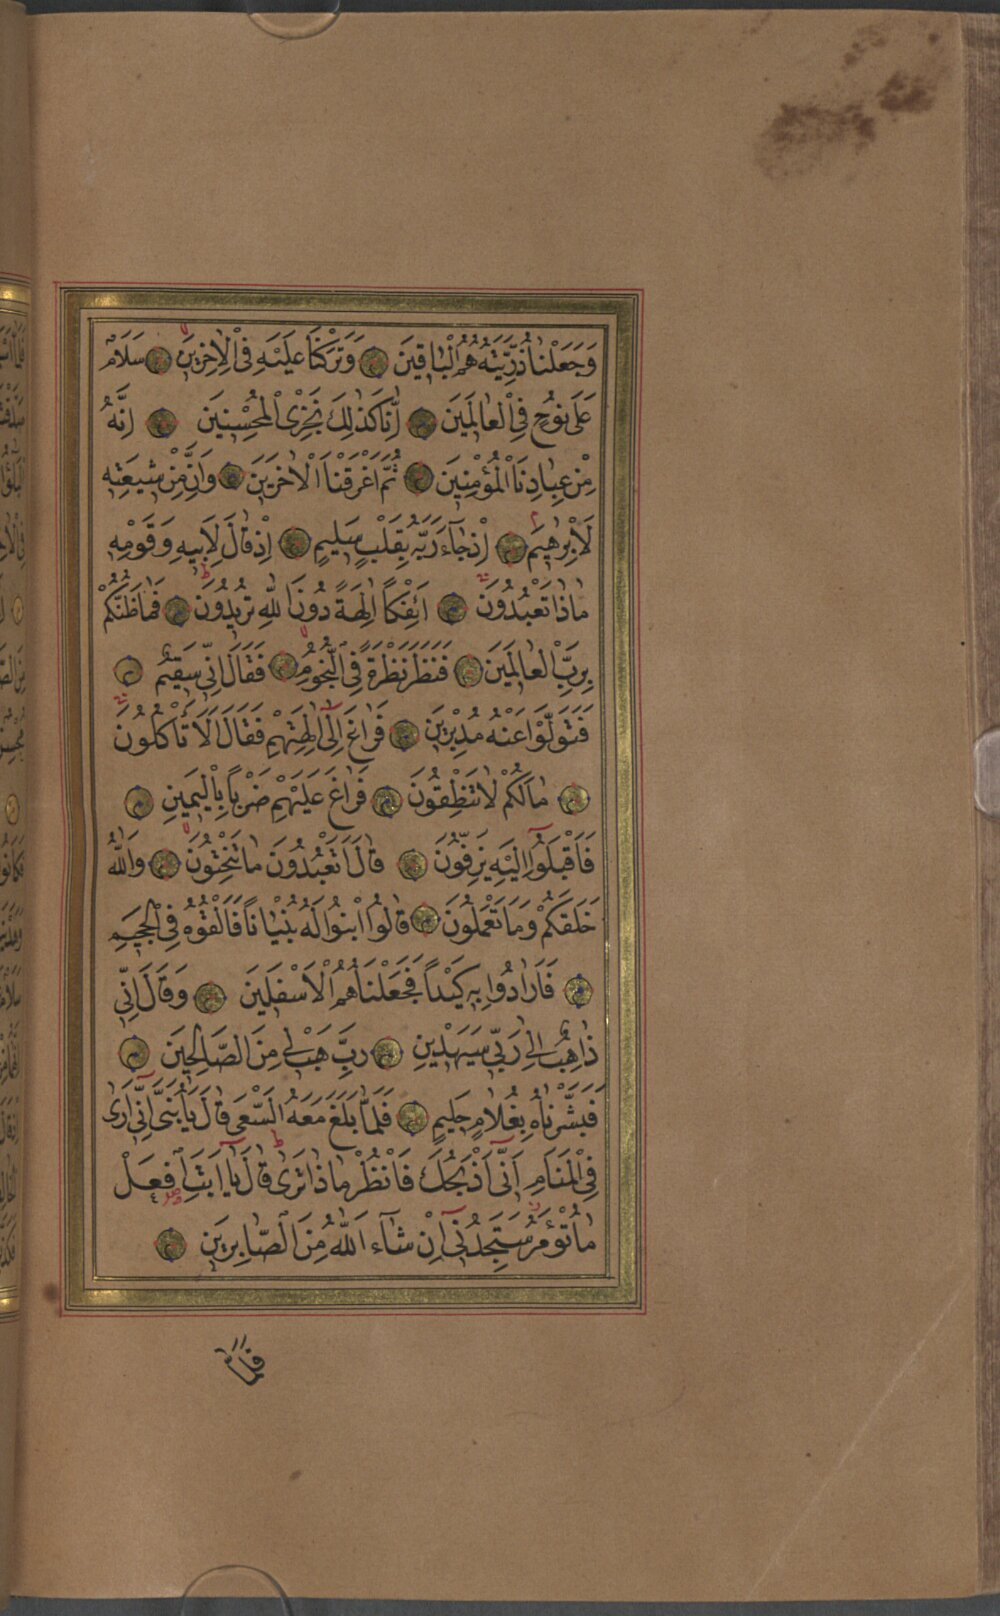 وَجَعَلْنَا ذُرِّيَّتَهُ هُمُ الْبَاقِينَ وَتَرَكْنَا عَلَيْهِ فِي الْاٰخِرِينَ سَلَامٌ
عَلَى نُوحٍ فِي الْعَالَمِينَ اِنَّا كَذٰلِكَ نَجْزِي الْمُحْسِنِينَ اِنَّهُ
مِنْ عِبَادِنَا الْمُؤْمِنِينَ ثُمَّ اَغْرَقْنَا الْاٰخَرِينَ وَاِنَّ مِنْ شِيعَتِهِ
لَاِبْرٰهِيمَ اِذْ جَآءَ رَبَّهُ بِقَلْبٍ سَلِيمٍ اِذْ قَالَ لِاَبِيهِ وَقَوْمِهِ
مَاذَا تَعْبُدُونَ اَئِفْكًا اٰلِهَةً دُونَ اللّٰهِ تُرِيدُونَ فَمَا ظَنُّكُمْ
بِرَبِّ الْعَالَمِينَ فَنَظَرَ نَظْرَةً فِي النُّجُومِ فَقَالَ اِنِّي سَقِيمٌ
فَتَوَلَّوْا عَنْهُ مُدْبِرِينَ فَرَاغَ اِلٰٓى اٰلِهَتِهِمْ فَقَالَ اَلَا تَأْكُلُونَ
مَالَكُمْ لَا تَنْطِقُونَ فَرَاغَ عَلَيْهِمْ ضَرْبًا بِالْيَمِينِ
فَاَقْبَلُوٓا اِلَيْهِ يَزِفُّونَ قَالَ اَتَعْبُدُونَ مَا تَنْحِتُونَ وَاللّٰهُ
خَلَقَكُمْ وَمَا تَعْمَلُونَ قَالُوا ابْنُوا لَهُ بُنْيَانًا فَاَلْقُوهُ فِي الْجَحِيمِ
فَاَرَادُوا بِهِ كَيْدًا فَجَعَلْنَاهُمُ الْاَسْفَلِينَ وَقَالَ اِنِّي
ذَاهِبٌ اِلٰى رَبِّي سَيَهْدِينِ رَبِّ هَبْ لِي مِنَ الصَّالِحِينَ
فَبَشَّرْنَاهُ بِغُلَامٍ حَلِيمٍ فَلَمَّا بَلَغَ مَعَهُ السَّعْيَ قَالَ يَا بُنَيَّ اِنِّٓي اَرٰى
فِي الْمَنَامِ اَنِّٓي اَذْبَحُكَ فَانْظُرْ مَاذَا تَرٰى قَالَ يَآ اَبَتِ افْعَلْ
مَا تُؤْمَرُ سَتَجِدُنِٓي اِنْ شَآءَ اللّٰهُ مِنَ الصَّابِرِينَ
فَلَمَّا